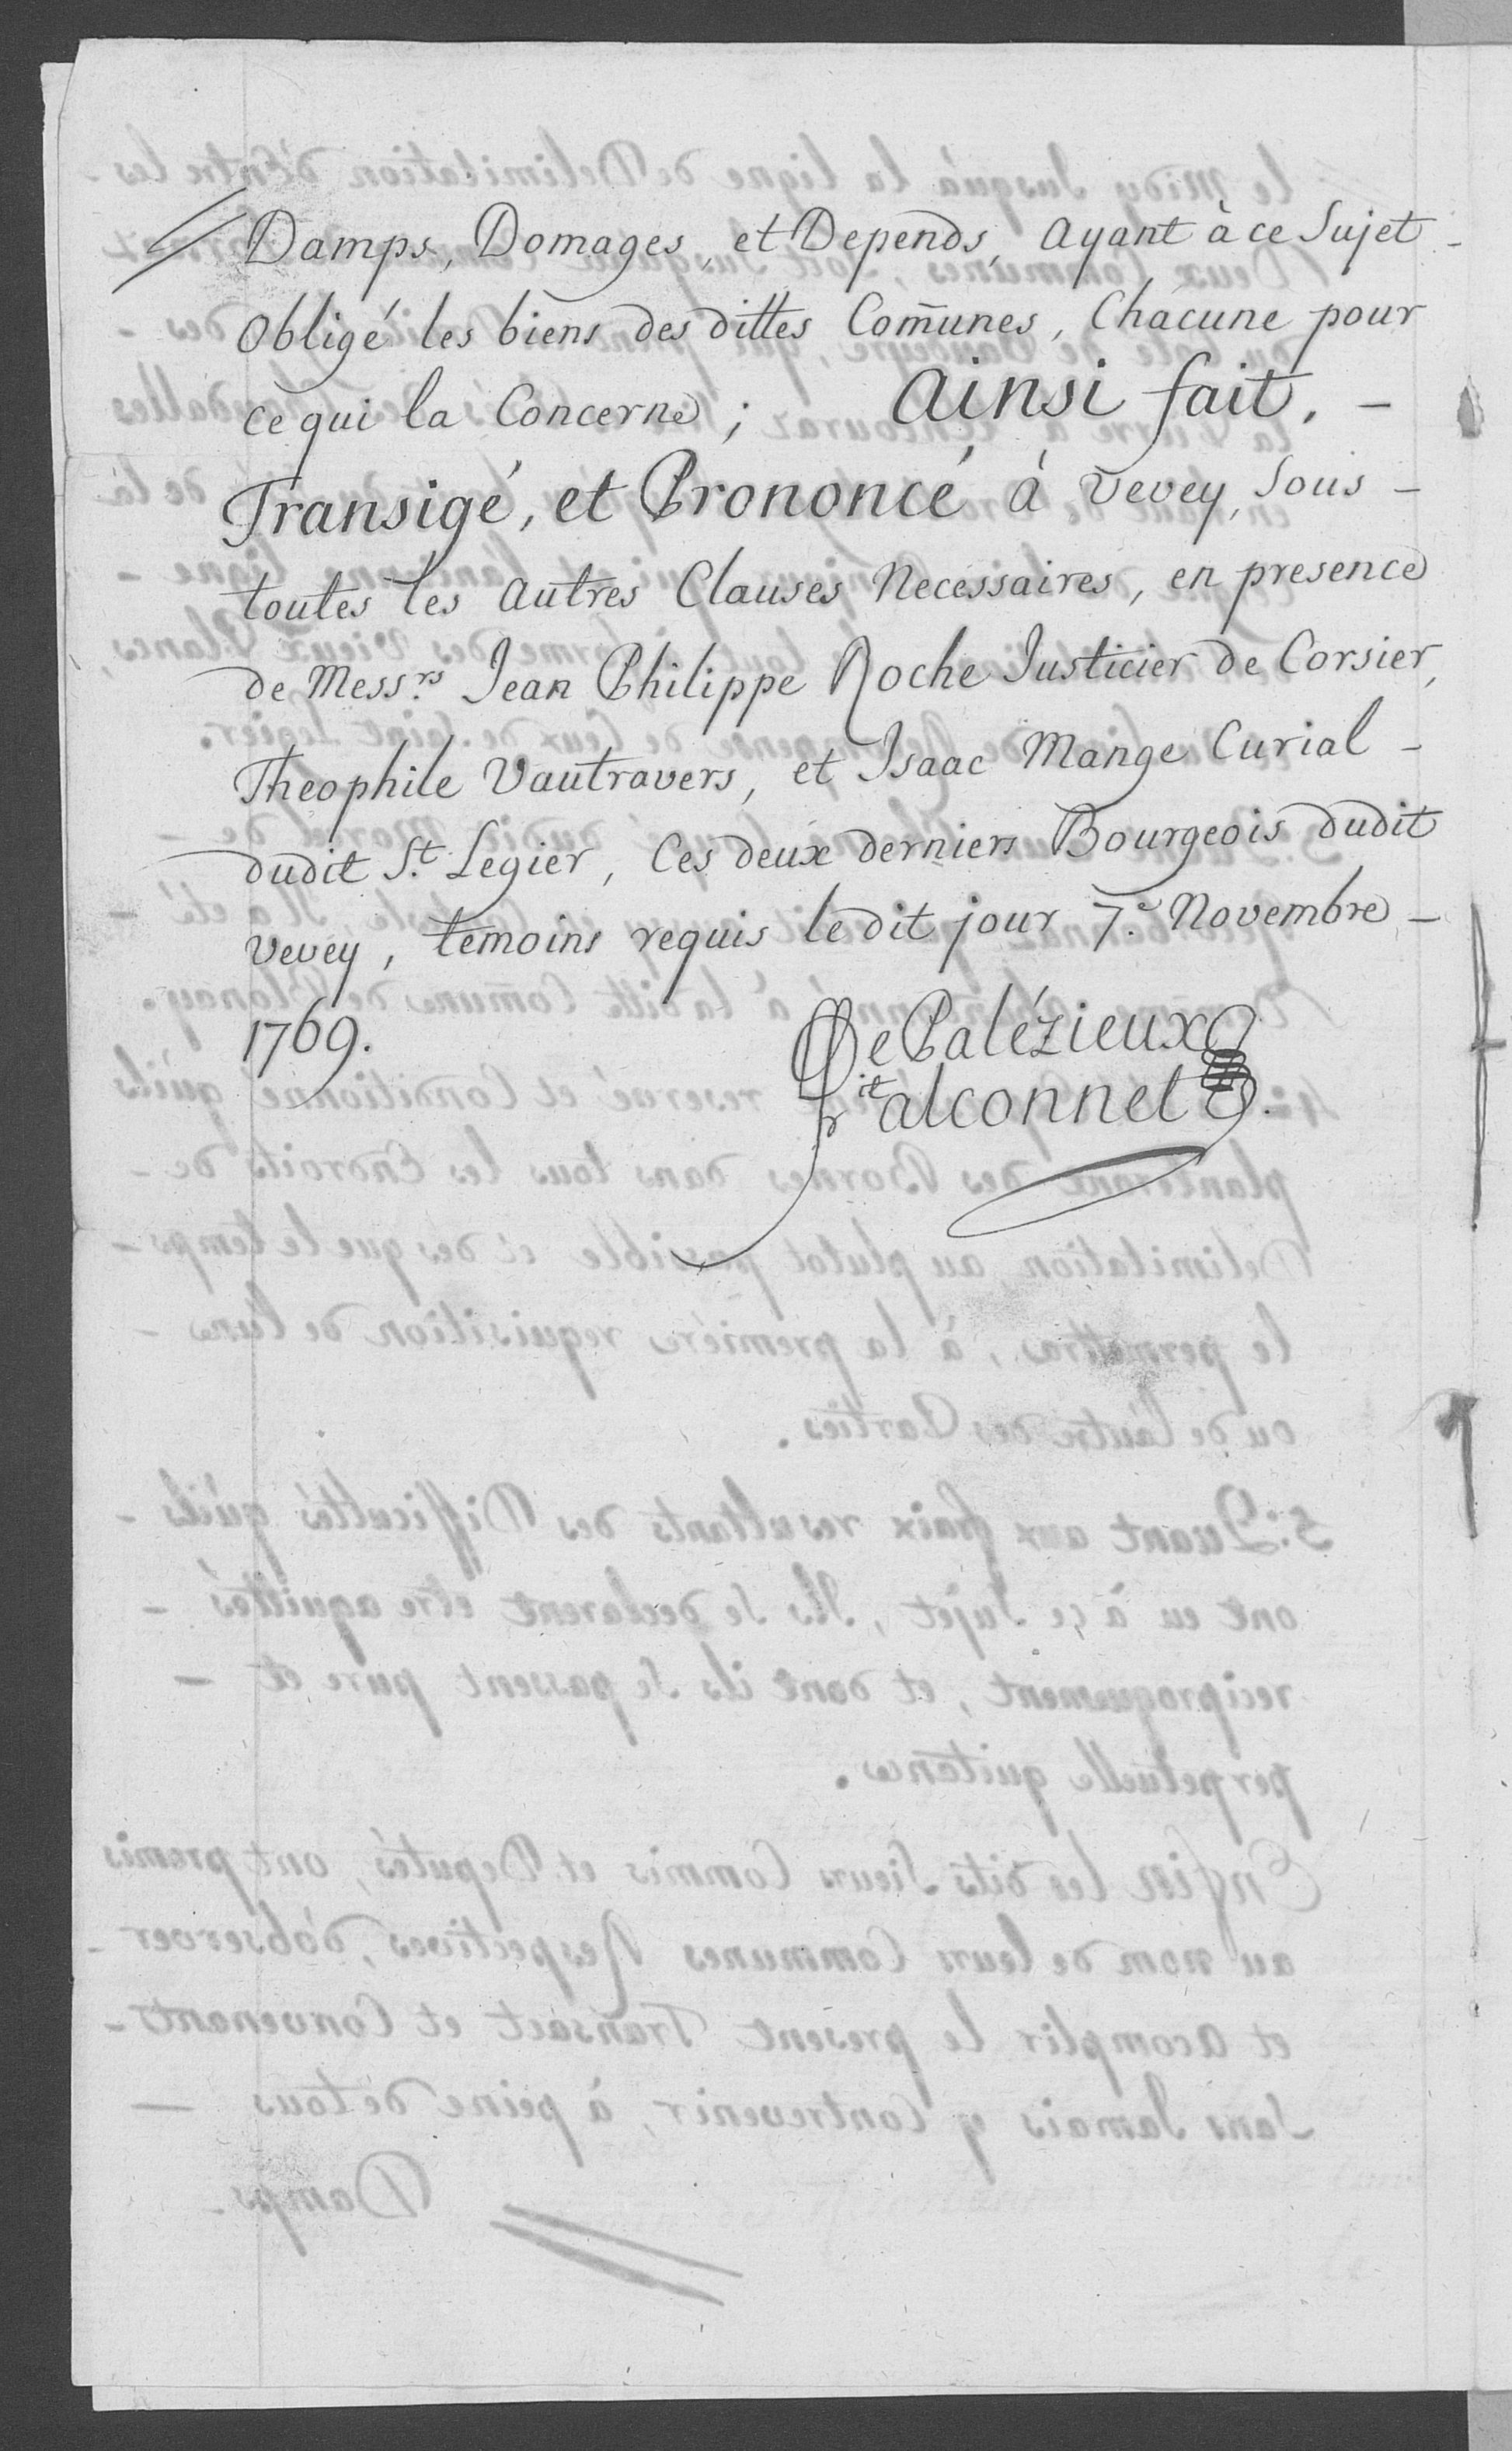 Damps, Domages, et Depends, ayant à ce Sujet -
Obligé les biens des dittes Com̄unes, Chacune pour
ce qui la Concerne ; Ainsi fait, -
Transigé, et Prononcé à Vevey, Sous -
toutes les autres Clauses Necessaires, en presence
de Mess.rs Jean Philippe Roche Justicier de Corsier,
Theophile Vautravers, et Isaac Mange Curial -
dudit S.t Legier, Ces deux derniers Bourgeois dudit
Vevey, temoins requis le dit jour 7.e Novembre -
1769.
De Palézieux
dit Falconnet